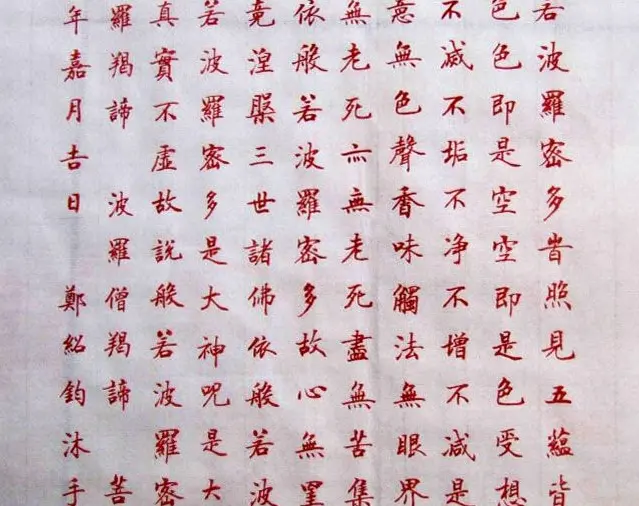 若波羅密多旹照見五蘊皆
色色即是空空即是色受想
不滅不垢不净不增不减是
意無色聲香味觸法無眼界
無老死亦無老死盡無苦集
依般若波羅密多故心無罣
竟涅槃三世諸佛依般若波
若波羅密多是大神呪是大
真實不虛故說般若波羅密
羅羯諦 波羅僧羯諦 菩
年嘉月吉日 鄭紹鈞沐手